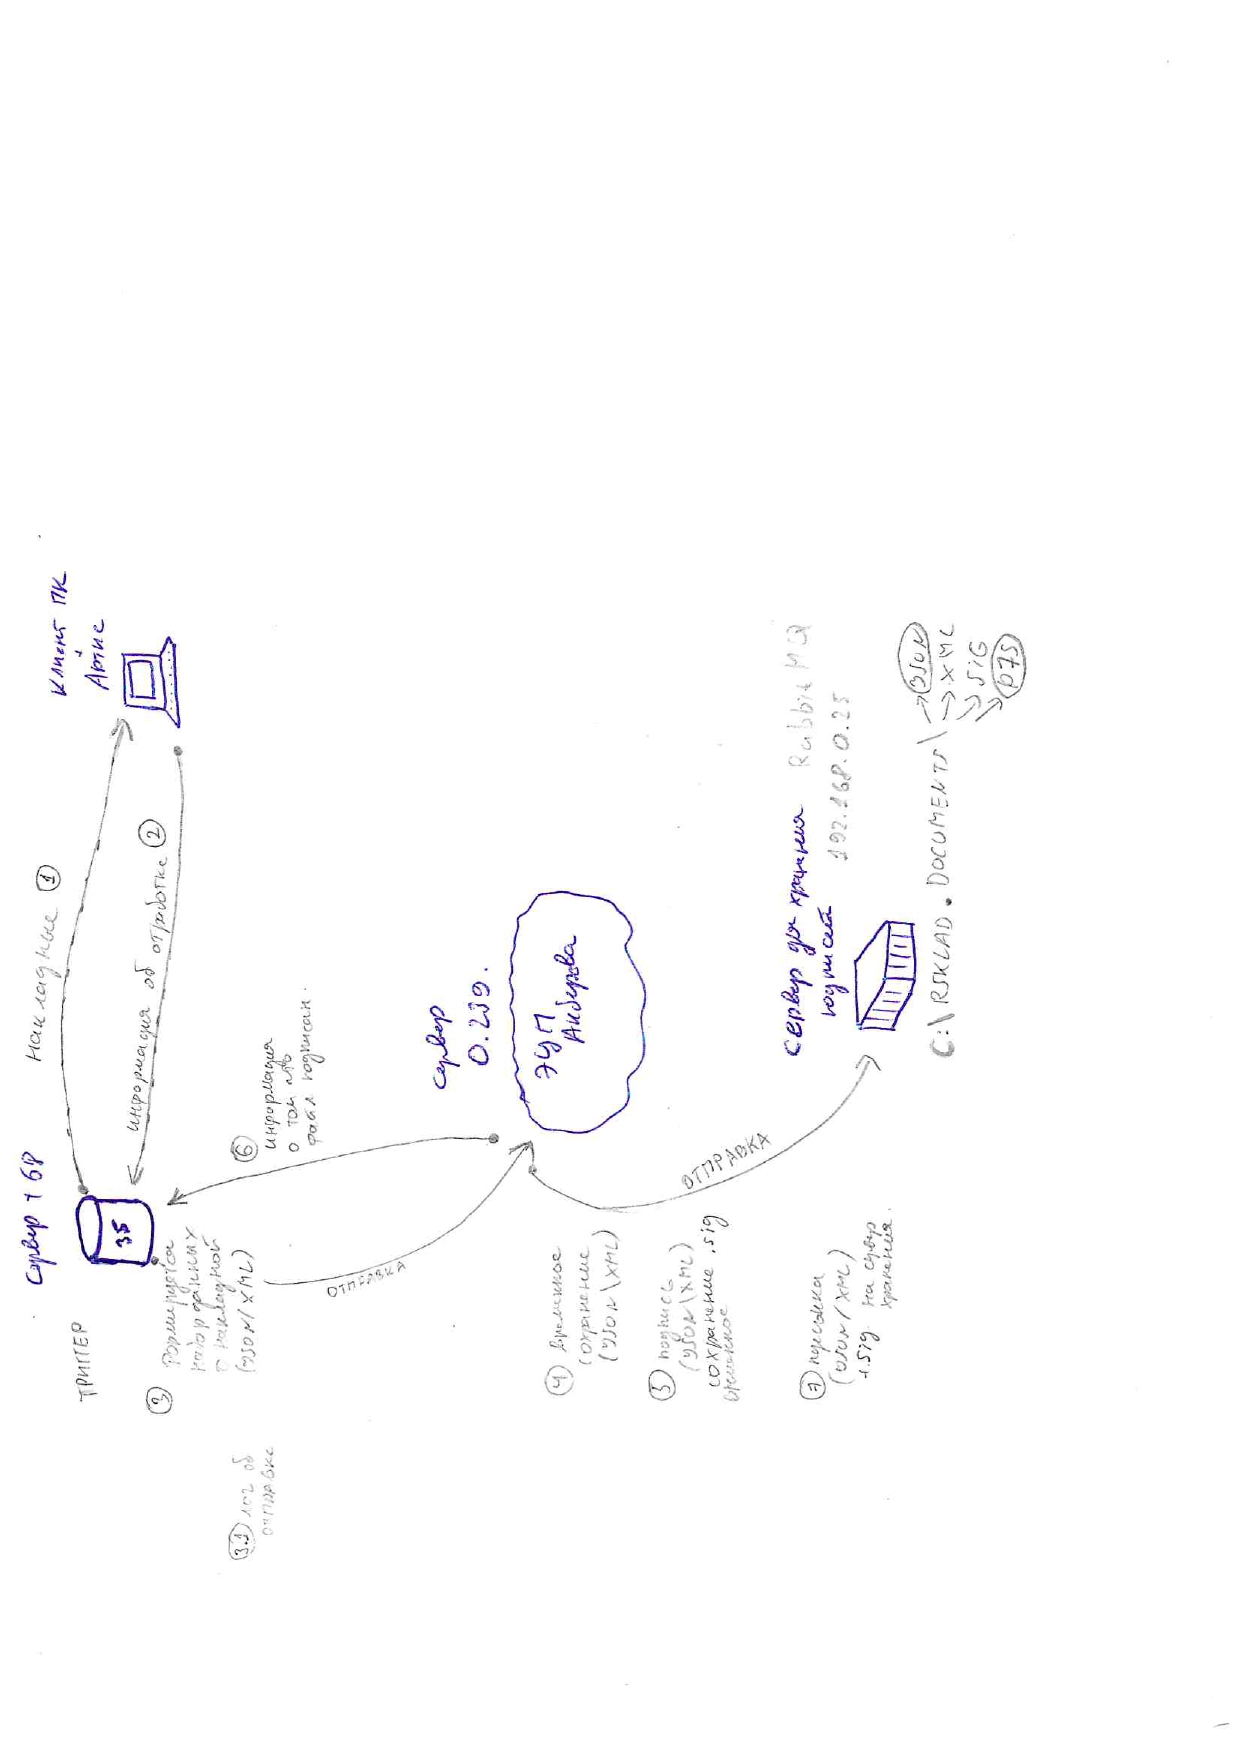 Сервер + БД
Накладные ①
Клиент ПК
+
Артис
ТРИГГЕР
35
информация об отработке ②
③ Формируется
набор данных
о накладной
(JSON/XML)
3.1 лог об
отправке
⑥
информация
о том что
файл подписан.
ОТПРАВКА
сервер
0.239.
ЭЦП
Акберова
④ Временное
сохранение
(JSON\XML)
⑤ подпись
(JSON\XML)
сохранение .sig
временное
ОТПРАВКА
⑦ пересылка
(JSON/XML)
+.sig на сервер
хранения.
Сервер для хранения
подписей
RabbitMQ
192.168.0.25
C:\RSKLAD.DOCUMENTS\
JSON
XML
SIG
p7S